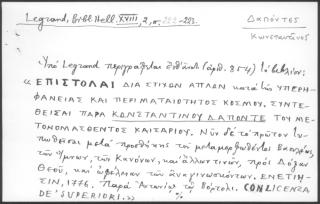 Legrand, Bibl. Hell. XVIII, 2, σ. 222-223.
Δαπόντες
Κωνσταντῖνος
Ὑπὸ Legrand περιγράφεται (ἀρ. 854) τὸ βιβλίον:
« ΕΠΙΣΤΟΛΑΙ ΔΙΑ ΣΤΙΧΩΝ ΑΠΛΩΝ κατὰ τῆς ΥΠΕΡΗ-
ΦΑΝΕΙΑΣ ΚΑΙ ΠΕΡΙ ΜΑΤΑΙΟΤΗΤΟΣ ΚΟΣΜΟΥ, ΣΥΝΤΕ-
ΘΕΙΣΑΙ ΠΑΡΑ ΚΩΝΣΤΑΝΤΙΝΟΥ ΔΑΠΟΝΤΕ ΤΟΥ ΜΕ-
ΤΟΝΟΜΑΣΘΕΝΤΟΣ ΚΑΙΣΑΡΙΟΥ. Νῦν δὲ τὸ πρῶτον τυ-
πωθεῖσαι μετὰ προσθήκης τοῦ
τῶν Ὕμνων, τῶν Κανόνων, καὶ ἄλλων τινῶν, πρὸς Δόξαν
Θεοῦ, καὶ ὠφέλειαν τῶν ἀναγινωσκόντων, ΕΝΕΤΙΗ-
ΣΙΝ, 1776. Παρὰ Ἀντωνίῳ τῷ Βόρτολι. CON LICENZA
DE' SUPERIORI. »